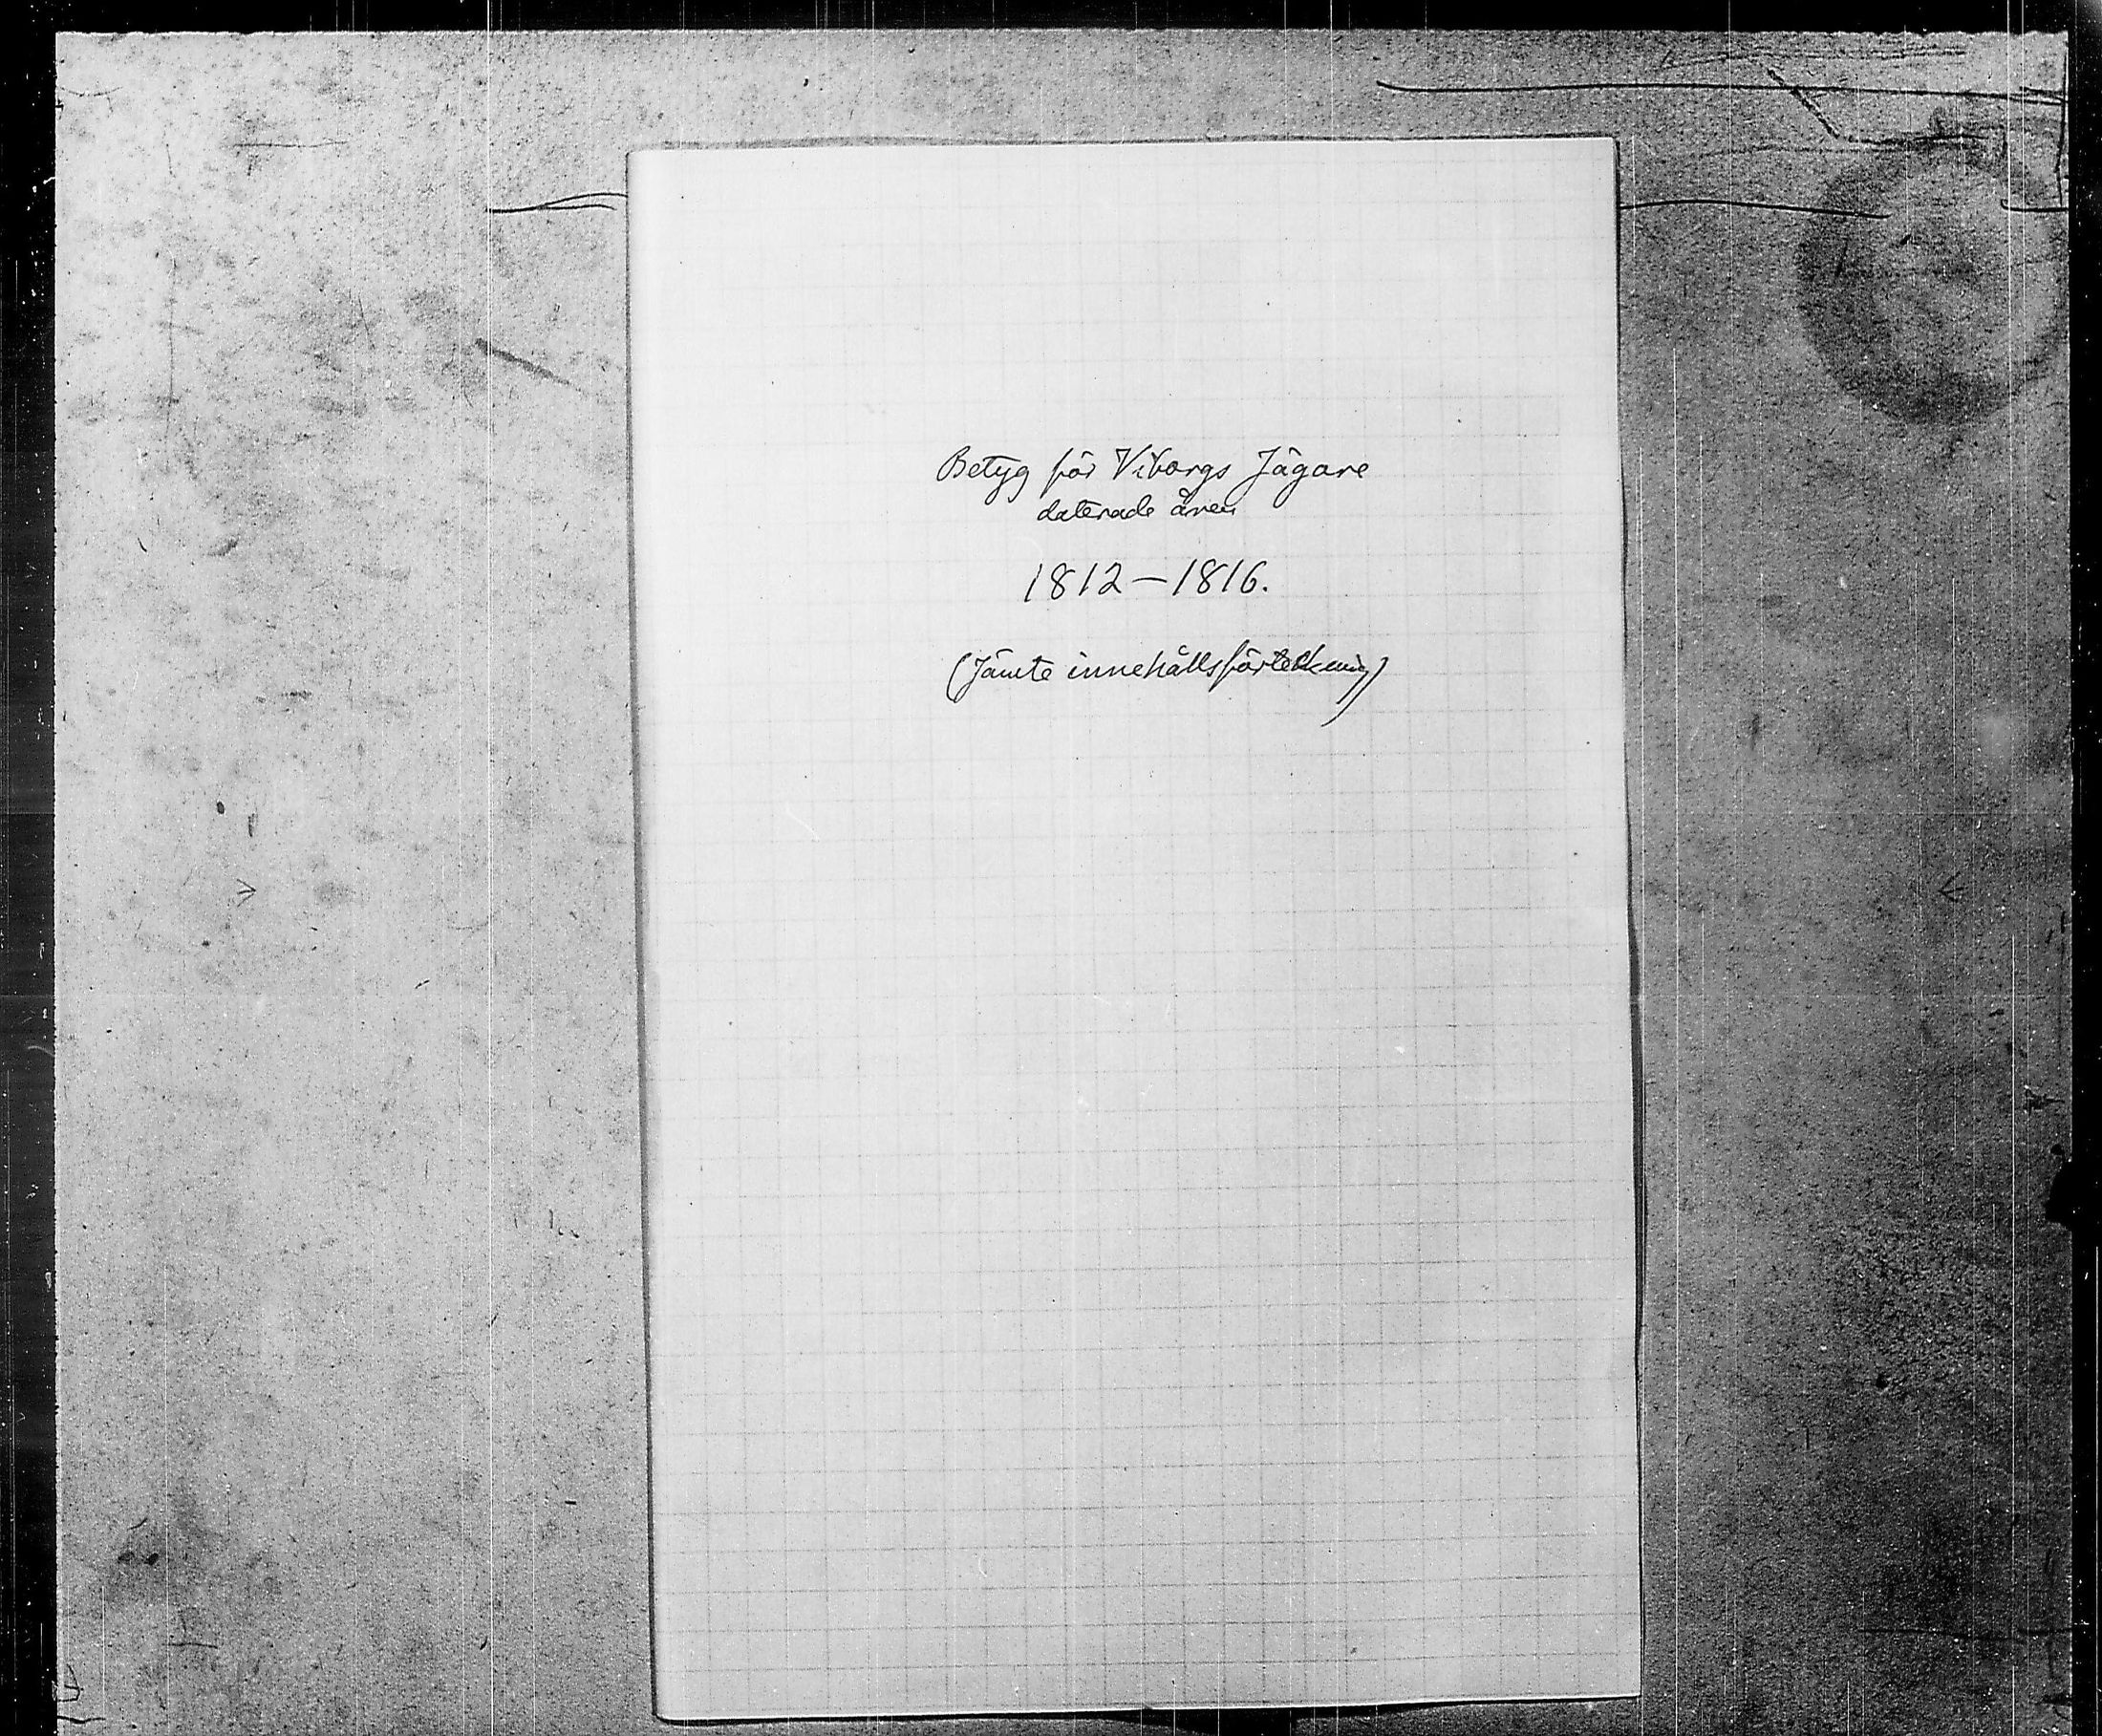 Betyg för Viborgs Jägare
daterade åren
1812–1816.
(Jämte innehållsförteckning)